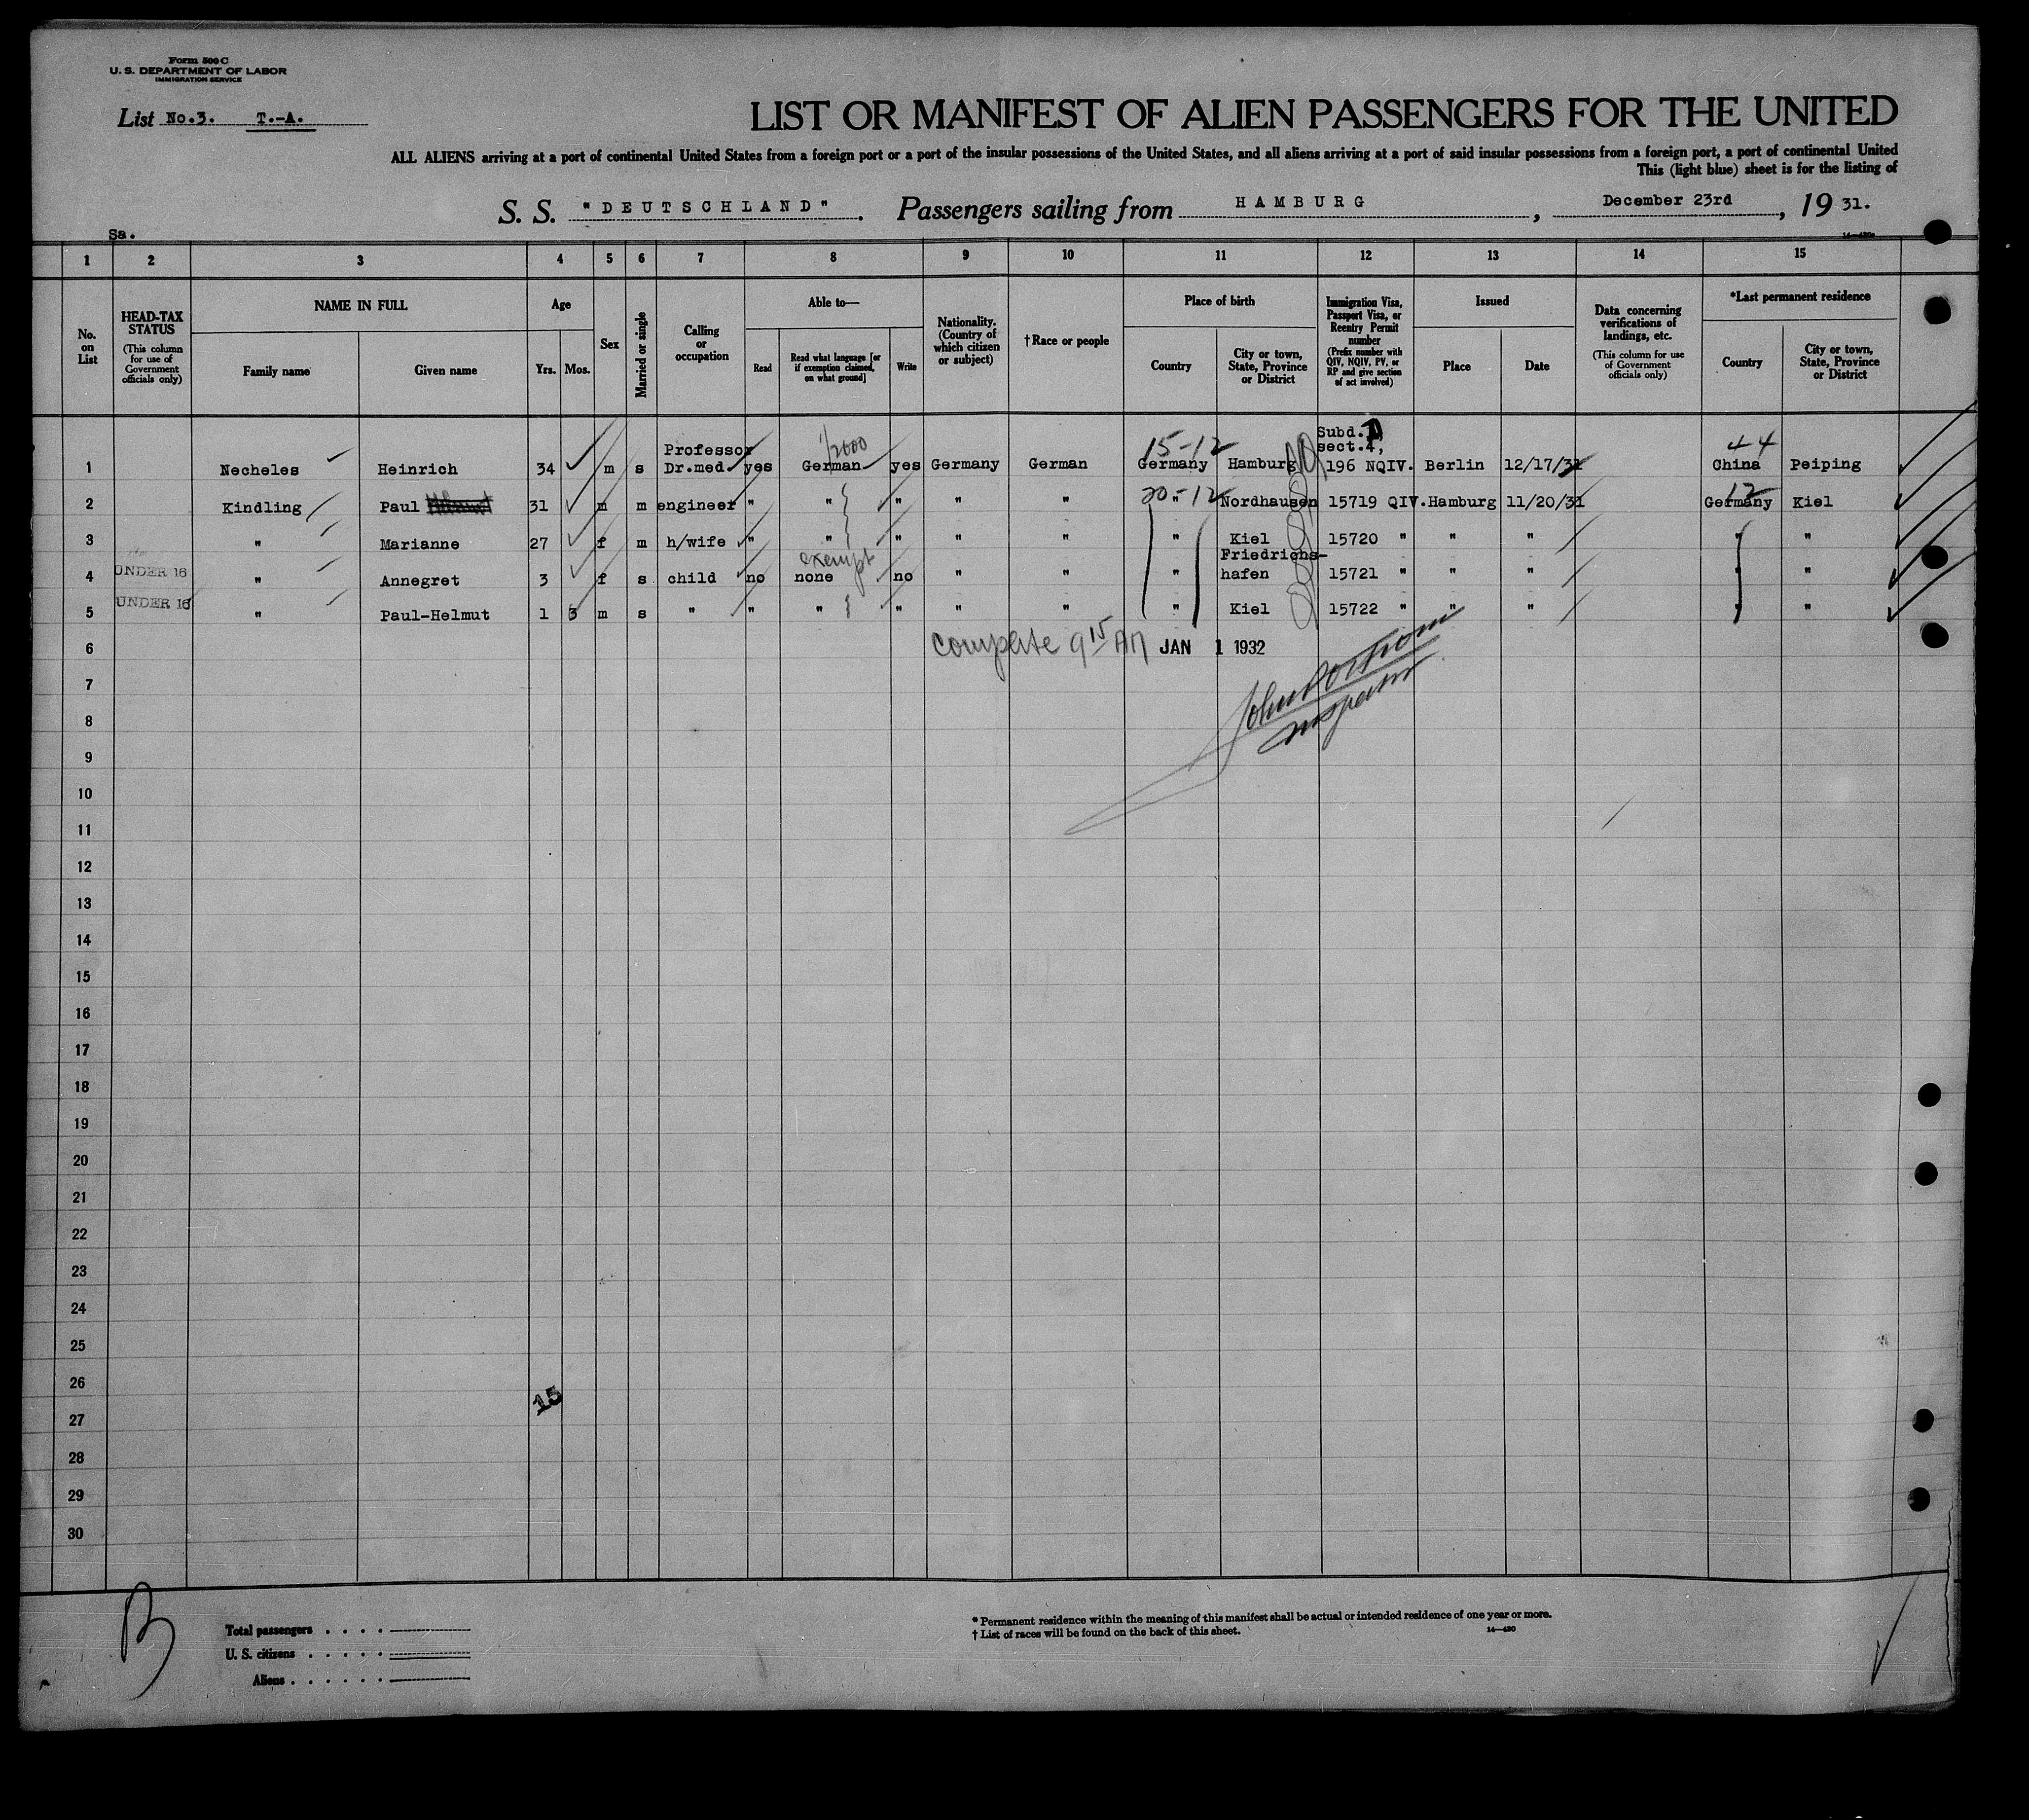 Form 500 C
U. S. DEPARTMENT OF LABOR
IMMIGRATION SERVICE
List No.3. T.-A.
LIST OR MANIFEST OF ALIEN PASSENGERS FOR THE UNITED
ALL ALIENS arriving at a port of continental United States from a foreign port or a port of the insular possessions of the United States, and all aliens arriving at a port of said insular possessions from a foreign port, a port of continental United
This (light blue) sheet is for the listing of
S. S. "DEUTSCHLAND". Passengers sailing from HAMBURG, December 23rd, 19 31.
Sa.
1 2 3 4 5 6 7 8 9 10 11 12 13 14 15
No. on List
HEAD-TAX STATUS
(This column for use of Government officials only)
NAME IN FULL
Family name
Given name
Age
Yrs. Mos.
Sex
Married or single
Calling or occupation
Able to—
Read
Read what language [or if exemption claimed, on what ground]
Write
Nationality. (Country of which citizen or subject)
†Race or people
Place of birth
Country
City or town, State, Province or District
Immigration Visa, Passport Visa, or Reentry Permit number
(Prefix number with QIV, NQIV, PV, or RP and give section of act involved)
Issued
Place
Date
Data concerning verifications of landings, etc.
(This column for use of Government officials only)
*Last permanent residence
Country
City or town, State, Province or District
Professor 15-12 Subd. sect.4, 44
1 Necheles Heinrich 34 m s Dr.med. yes German yes Germany German Germany Hamburg 196 NQIV. Berlin 12/17/31 China Peiping
20-12 12
2 Kindling Paul 31 m m engineer " " " " " " Nordhausen 15719 QIV. Hamburg 11/20/31 Germany Kiel
3 " Marianne 27 f m h/wife " " " " " " Kiel 15720 " " " " "
exempt Friedrichs-
UNDER 16 4 " Annegret 3 f s child no none no " " " hafen 15721 " " " " "
UNDER 16 5 " Paul-Helmut 1 3 m s " " " " " " " Kiel 15722 " " " " "
6 complete 9 15 AM JAN 1 1932
7
8 Inspector
9
10
11
12
13
14
15
16
17
18
19
20
21
22
23
24
25
26
15
27
28
29
30
B
Total passengers
U. S. citizens
Aliens
* Permanent residence within the meaning of this manifest shall be actual or intended residence of one year or more.
† List of races will be found on the back of this sheet.
14—430